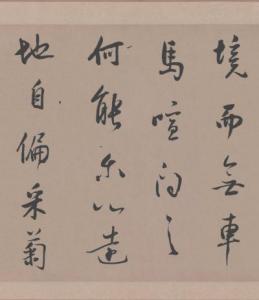 境而無車
馬喧問君
何能尔心遠
地自偏采菊